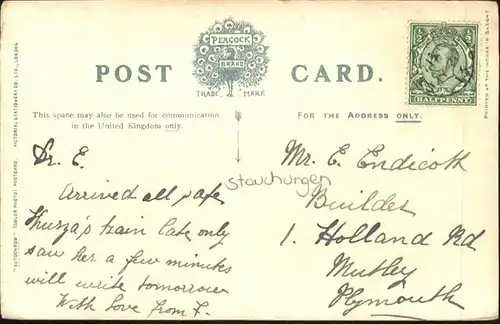 POST CARD.
PEACOCK
BRAND
TRADE MARK
HALFPENNY
This space may also be used for communication
in the United Kingdom only.
FOR THE ADDRESS ONLY.
Dr. E.
Arrived all safe
Thurza's train late only
saw her a few minutes
will write tomorrow
With Love from F.
Stauchungen
Mr. E. Endicott
Builder
1. Holland Rd
Mutley
Plymouth
VICTORIA STATIONERY CO. LTD., LONDON.
PRINTED AT THE WORKS IN SAXONY